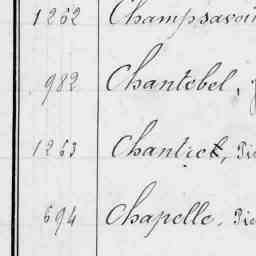 1262 Champsavoi
982 Chantebel,
1263 Chantret, Pie
694 Chapelle, Pie